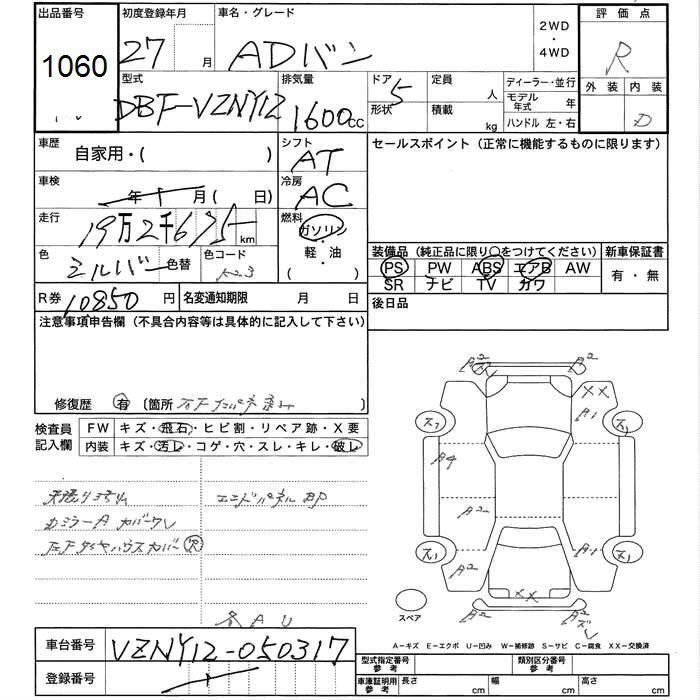 出品番号 1060
初度登録年月 27 月
車名・グレード ADバン
2WD・4WD
評価点 R
外装 内装 D
型式 DBF-VZNY12
排気量 1600cc
ドア形状 5
定員 人
積載 kg
ディーラー・並行
モデル年式 年
ハンドル 左・右
車歴 自家用・( )
シフト AT
セールスポイント (正常に機能するものに限ります)
車検 年 月( 日)
冷房 AC
走行 19万2千675 km
燃料 ガソリン・軽・油 ( )
色 シルバー 色替 色コード K23
装備品 (純正品に限り○をつけてください)
PS PW ABS エアB AW
SR ナビ TV カワ
新車保証書 有・無
R券 10850円
名変通知期限 月 日
後日品
注意事項申告欄 (不具合内容等は具体的に記入して下さい)
修復歴 有 〔箇所
検査員記入欄
FW キズ・飛石・ヒビ割・リペア跡・X要
内装 キズ・汚レ・コゲ・穴・スレ・キレ・破レ
エンドパネルBP
右ミラーA カバーワレ
A2 A2
XX
A1
A4
A2
A2 A1
A2
XX
A2 A2
スペア
A-キズ E-エクボ U-凹み W-補修跡 S-サビ C-腐食 XX-交換済
車台番号 VZNY12-050317
登録番号
型式指定番号 参考
類別区分番号 参考
車庫証明用 参考 長さ cm 幅 cm 高さ cm